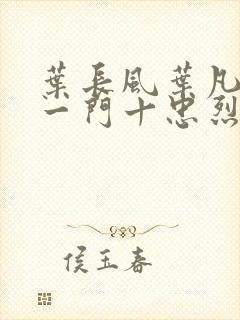 葉長風葉凡
一門十忠烈
侯玉春